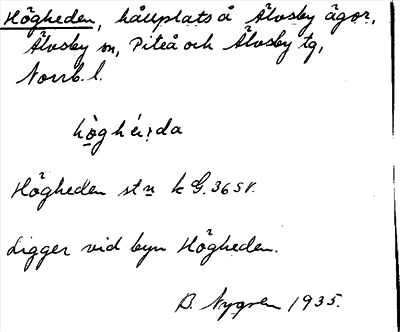 Högheden, hållplats å Älvsby ägor,
Älvsby sn, Piteå och Älvsby tg,
Norrb. l.
hò̤ghé̤ːda
Högheden stn k G. 36 SV.
Ligger vid byn Högheden.
B. Nygren 1935.